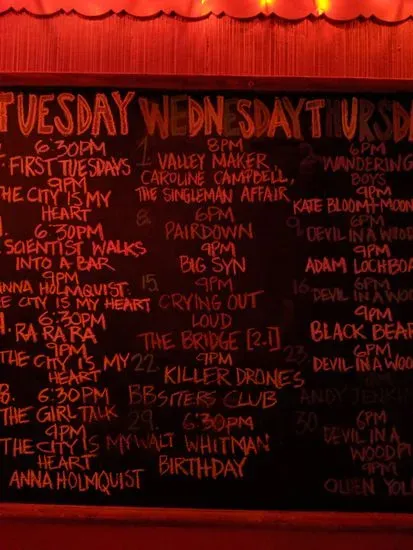 TUESDAY
6:30PM
FIRST TUESDAYS
9PM
THE CITY IS MY
HEART
6:30PM
SCIENTIST WALKS
INTO A BAR
9PM
NNA HOLMQUIST:
E CITY IS MY HEART
6:30PM
RA RA RA
9PM
THE CITY IS MY
HEART
8. 6:30PM
THE GIRL TALK
9PM
THE CITY IS MY
HEART
ANNA HOLMQUIST
WEDNESDAY
1. 8PM
VALLEY MAKER,
CAROLINE CAMPBELL,
THE SINGLEMAN AFFAIR
8. 6PM
PAIRDOWN
9PM
BIG SYN
15. 9PM
CRYING OUT
LOUD
THE BRIDGE [2.1]
22. 9PM
KILLER DRONES
BBSITTERS CLUB
29. 6:30PM
WALT WHITMAN
BIRTHDAY
THURSDA
2. 6PM
WANDERING
BOYS
9PM
KATE BLOOM + MOON
9. 6PM
DEVIL IN A WOOD
9PM
ADAM LOCHBOA
16. 6PM
DEVIL IN A WOO
9PM
BLACK BEAR
23. 6PM
DEVIL IN A WOO
ANDY JENKI
30. 6PM
DEVIL IN A
WOODP
9PM
QUEN YOL